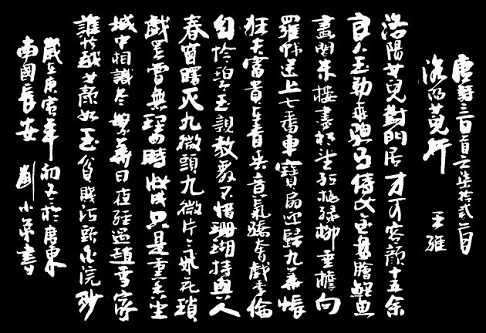 唐詩三百首之柒拾貳首
洛陽女兒行 王維
洛陽女兒對門居才可容顏十五余
良人玉勒乘驄馬侍女金盤膾鯉魚
畫閣朱樓盡相望紅桃綠柳垂檐向
羅帷送上七香車寶扇迎歸九華帳
狂夫富貴在青春意氣驕奢劇季倫
自憐碧玉親教舞不惜珊瑚持與人
春窗曙灭九微九微片片飛花瑣
戲罷曾無理時妝成只是熏香坐
城中相識盡繁華日夜經過趙李家
誰憐越女顏如玉貧賤江頭自浣紗
歲在庚寅年初冬於廣東
南國長安 劉小書